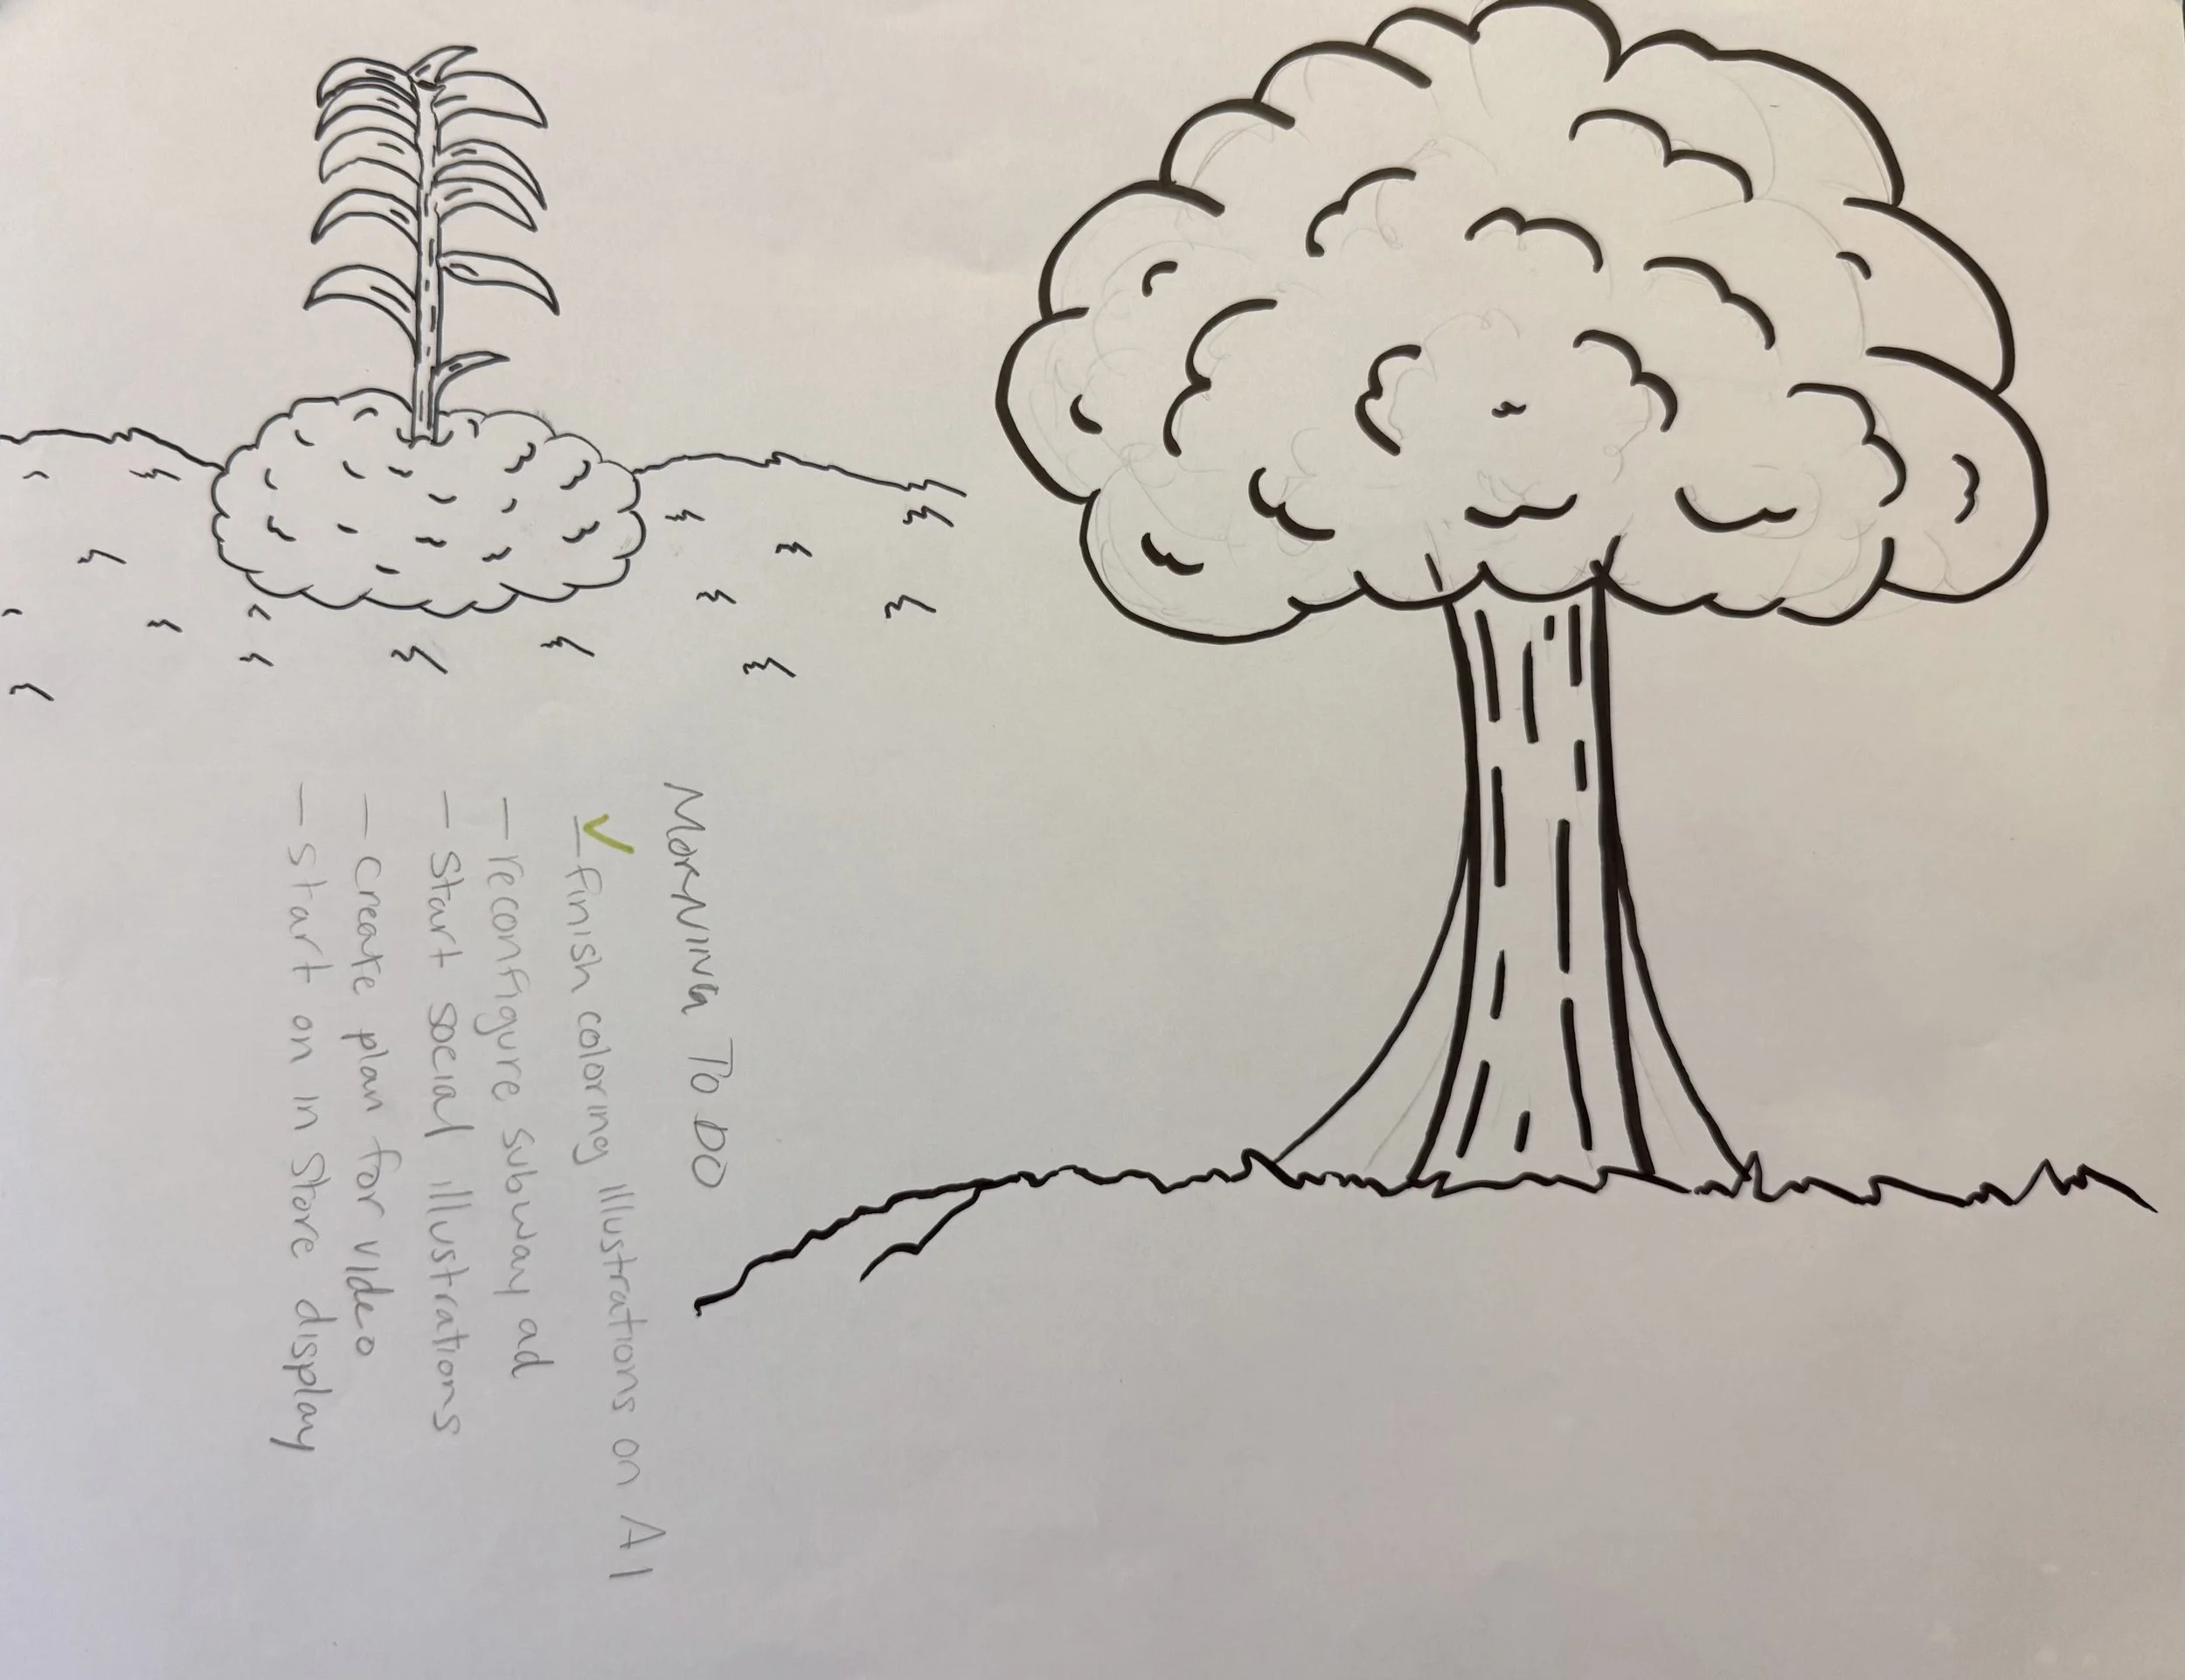 MORNING TO DO
✓ – finish coloring illustrations on AI
– reconfigure subway ad
– start social illustrations
– create plan for video
– start on in store display